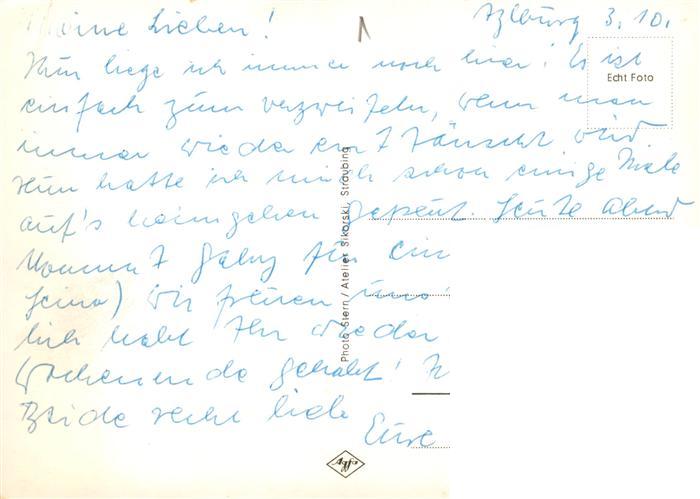 Azlburg 3. 10.
Meine Lieben!
Nun liege ich immer noch hier! Es ist
einfach zum verzweifeln, wenn man
immer wieder enttäuscht wird.
Nun hatte ich mich schon einige Male
auf's heimgehen gefreut. Heute Abend
kommt Gaby für ein
wir freuen uns
lich habt Ihr wieder
Wochenende gehabt!
Beide recht lieb
Eure
Echt Foto
Photo Stern / Atelier Sikorski, Straubing
Agfa